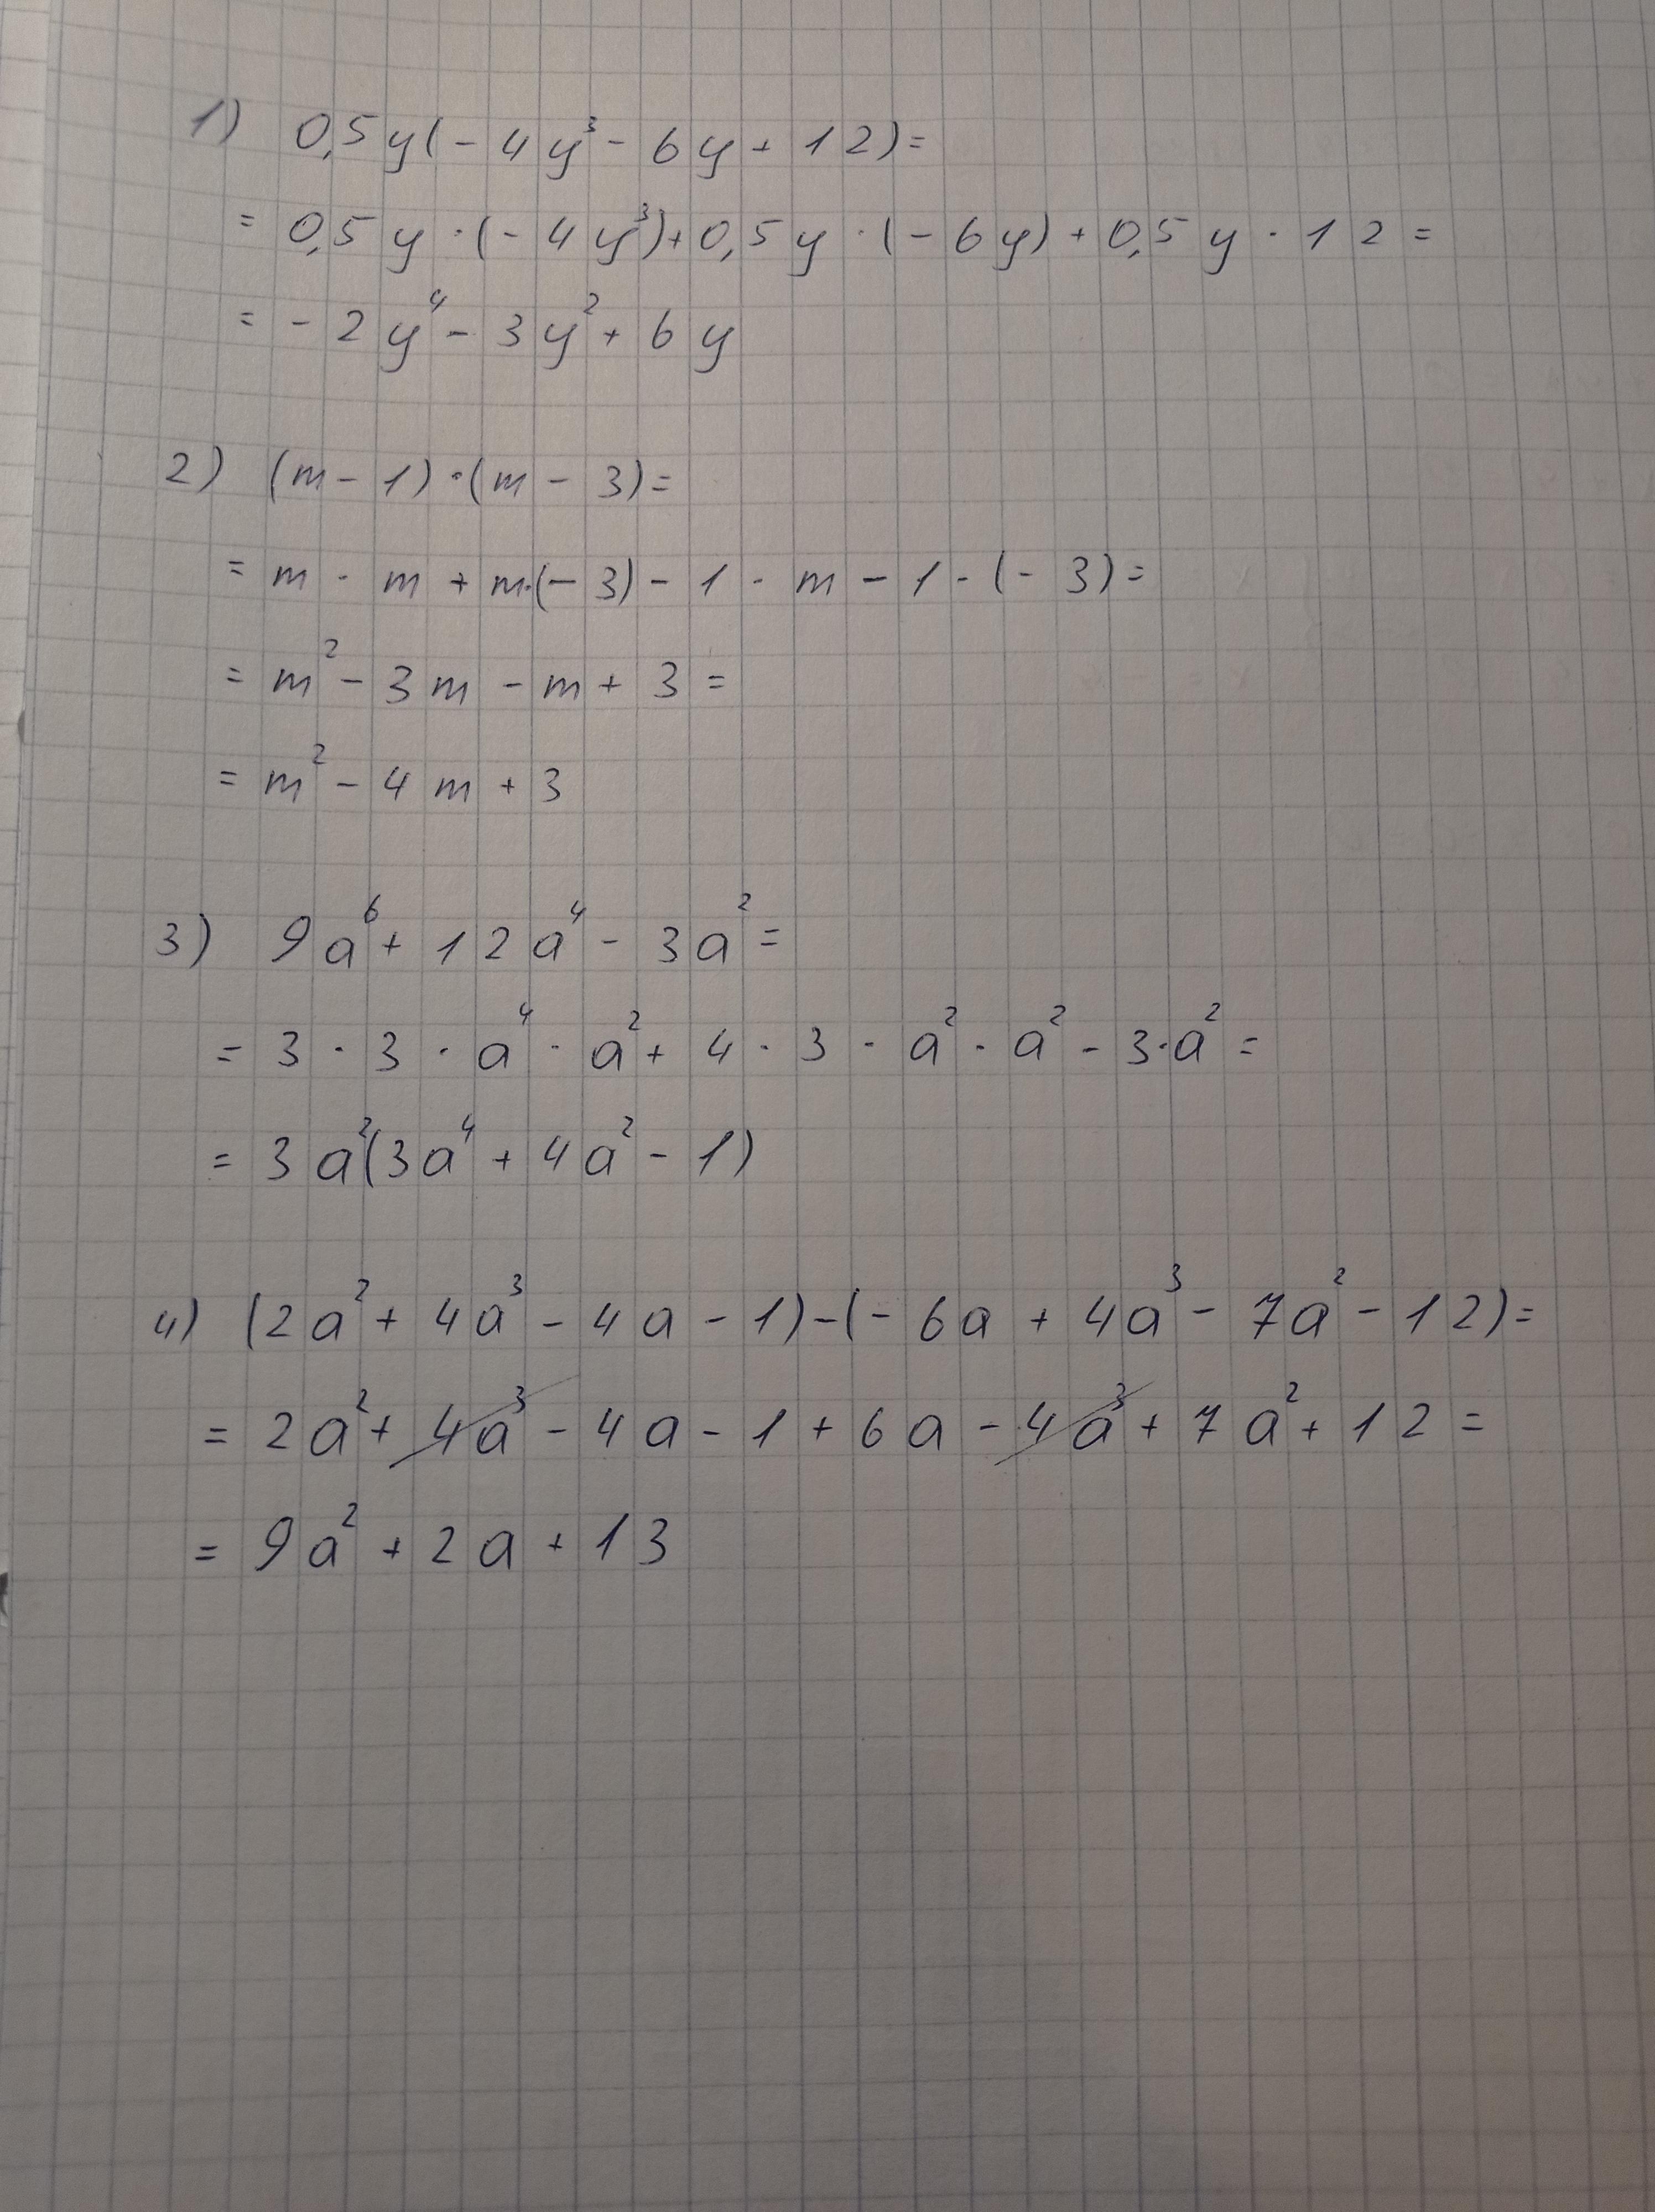 1) 0,5y(-4y³-6y+12)=
= 0,5y·(-4y³)+0,5y·(-6y)+0,5y·12=
= -2y⁴-3y²+6y
2) (m-1)·(m-3)=
= m·m+m·(-3)-1·m-1·(-3)=
= m²-3m-m+3=
= m²-4m+3
3) 9a⁶+12a⁴-3a²=
= 3·3·a⁴·a²+4·3·a²·a²-3·a²=
= 3a²(3a⁴+4a²-1)
4) (2a²+4a³-4a-1)-(-6a+4a³-7a²-12)=
= 2a²+4a³-4a-1+6a-4a³+7a²+12=
= 9a²+2a+13